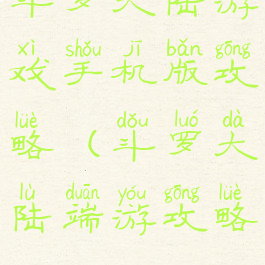 斗罗大陆游
xì shǒu jī bǎn gōng
戏手机版攻
lüè dǒu luó dà
略（斗罗大
lù duān yóu gōng lüè
陆端游攻略